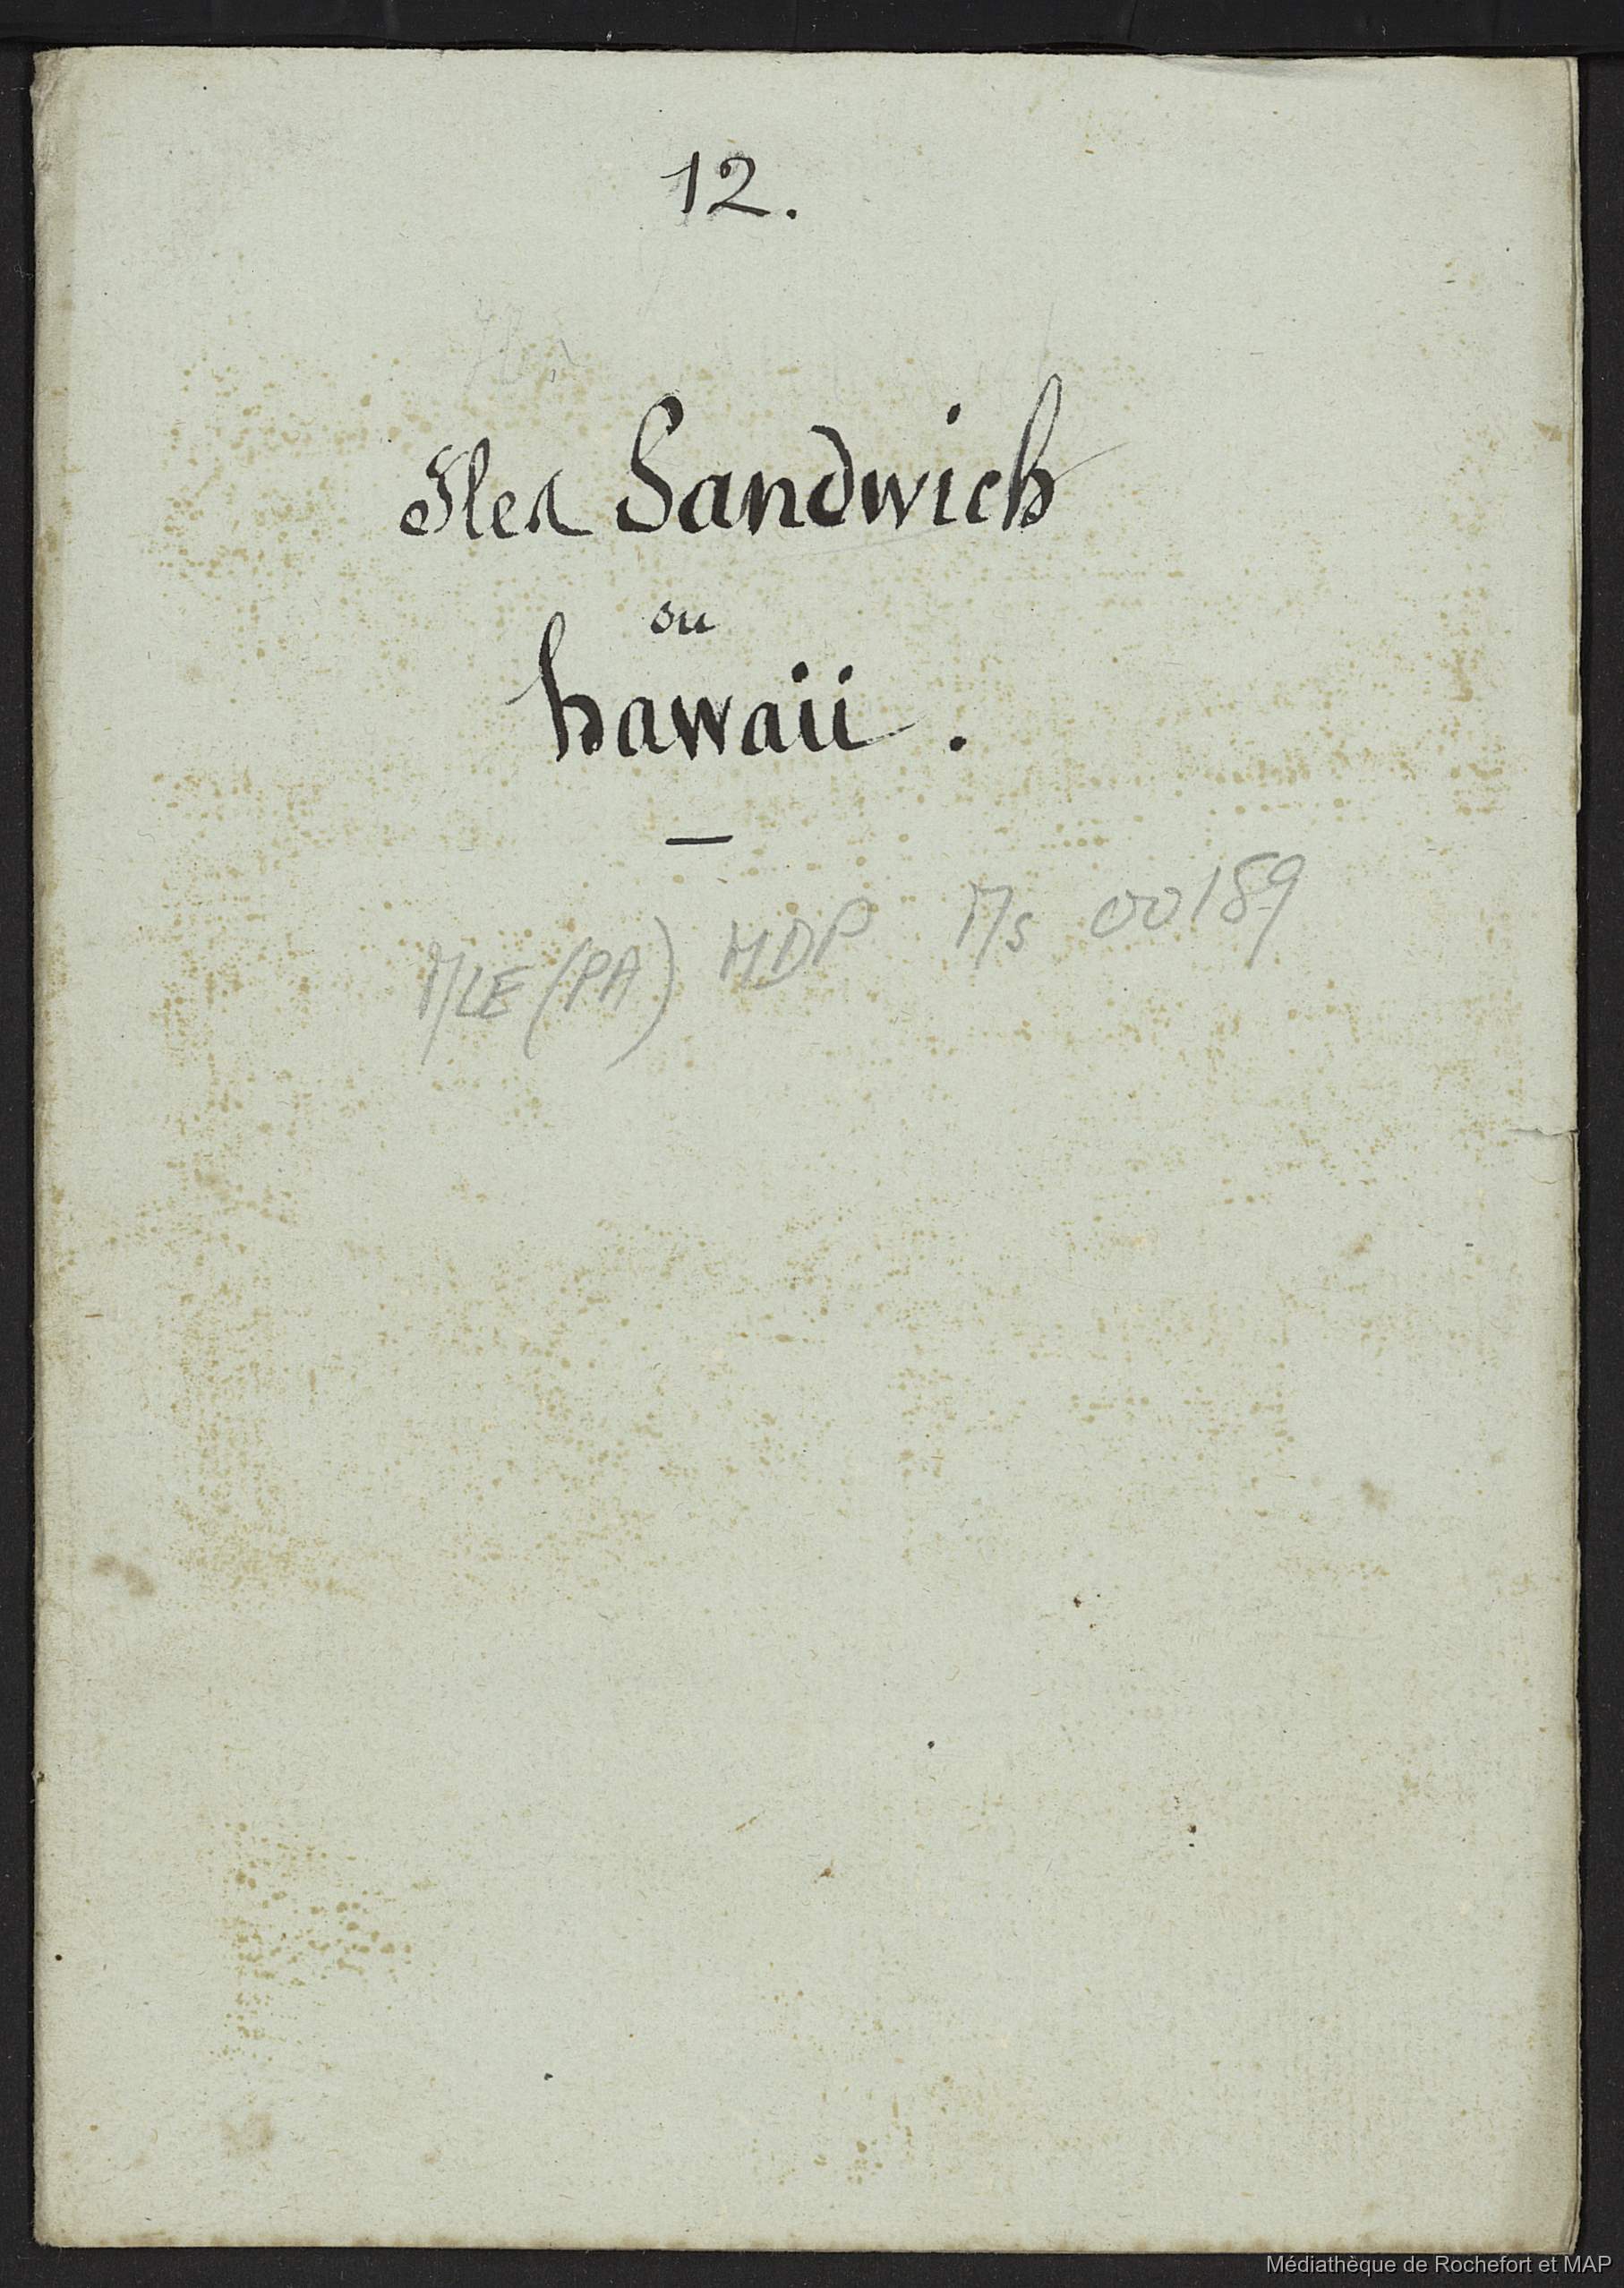 12.
Iles Sandwich
ou
hawaii.
MLE (PA) MDP Ms 00189
Médiathèque de Rochefort et MAP